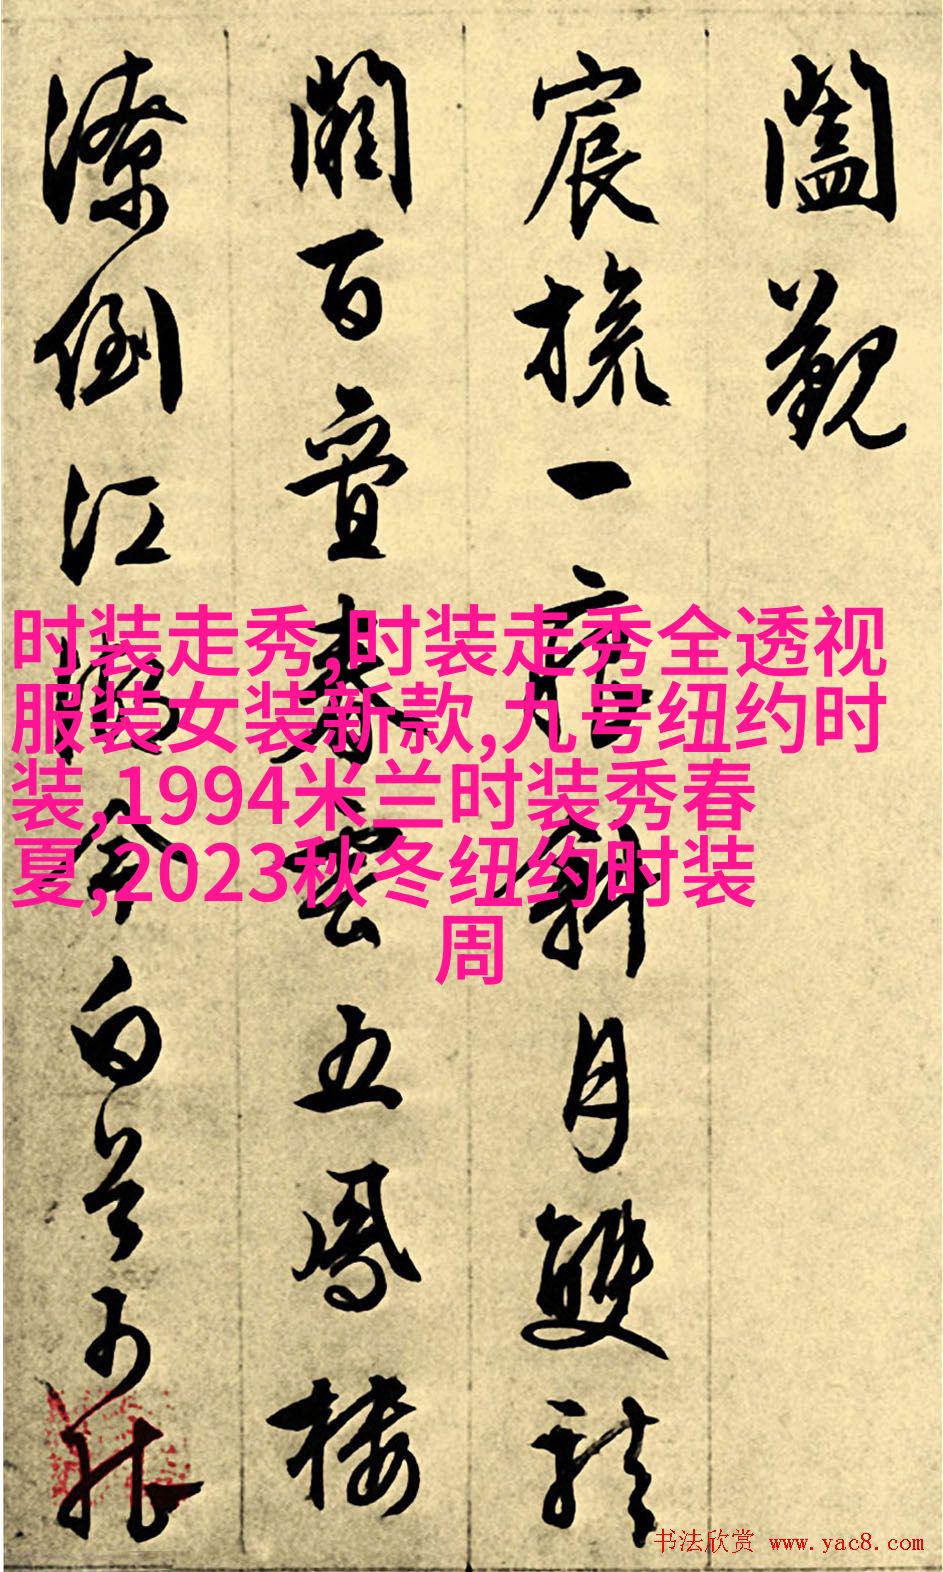 闔覲
宸旒一痕斜月雙龍
闕百疊春雲五鳳樓
潦倒江湖今白首可能
时装走秀,时装走秀全透视
服装女装新款,九号纽约时
装,1994米兰时装秀春
夏,2023秋冬纽约时装
周
书法欣赏 www.yac8.com